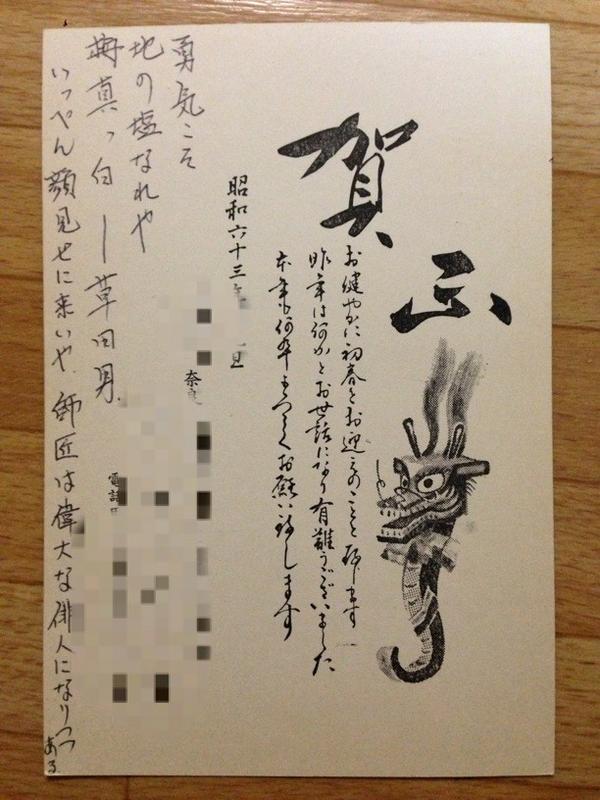 賀正
お健やかに初春をお迎えのことと存じます
昨年は何かとお世話になり有難うございました
本年も何卒よろしくお願い致します
昭和六十三年 旦
奈良
電話
勇気こそ
地の塩なれや
梅真っ白 ー草田男
いっぺん顔見せに来いや。師匠は偉大な俳人になりつつある